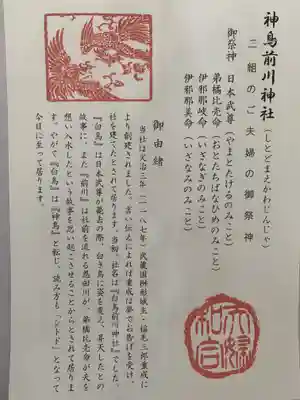 神鳥前川神社(しとどまえかわじんじゃ)
二組のご夫婦の御祭神
御祭神 日本武尊(やまとたけるのみこと)
弟橘比売命(おとたちばなひめのみこと)
伊邪那岐命(いざなぎのみこと)
伊邪那美命(いざなみのみこと)
御由緒
当社は文治三年(一一八七年)、武蔵国桝形城主・稲毛三郎重成に
より創建されました。言い伝えによれば重成は夢でお告げを受け、
社を建てたとされて居ります。当初、社名は『白鳥前川神社』でした。
『白鳥』は日本武尊が薨去の際、白き鳥に姿を変え、昇天したとの
故事に、また『前川』は社前を流れる恩田川が、弟橘比売命が夫を
想い入水したという故事を思い起こさせることからとされて居りま
す。やがて『白鳥』は『神鳥』と転じ、読み方も「シトド」となって
今日に至って居ります。